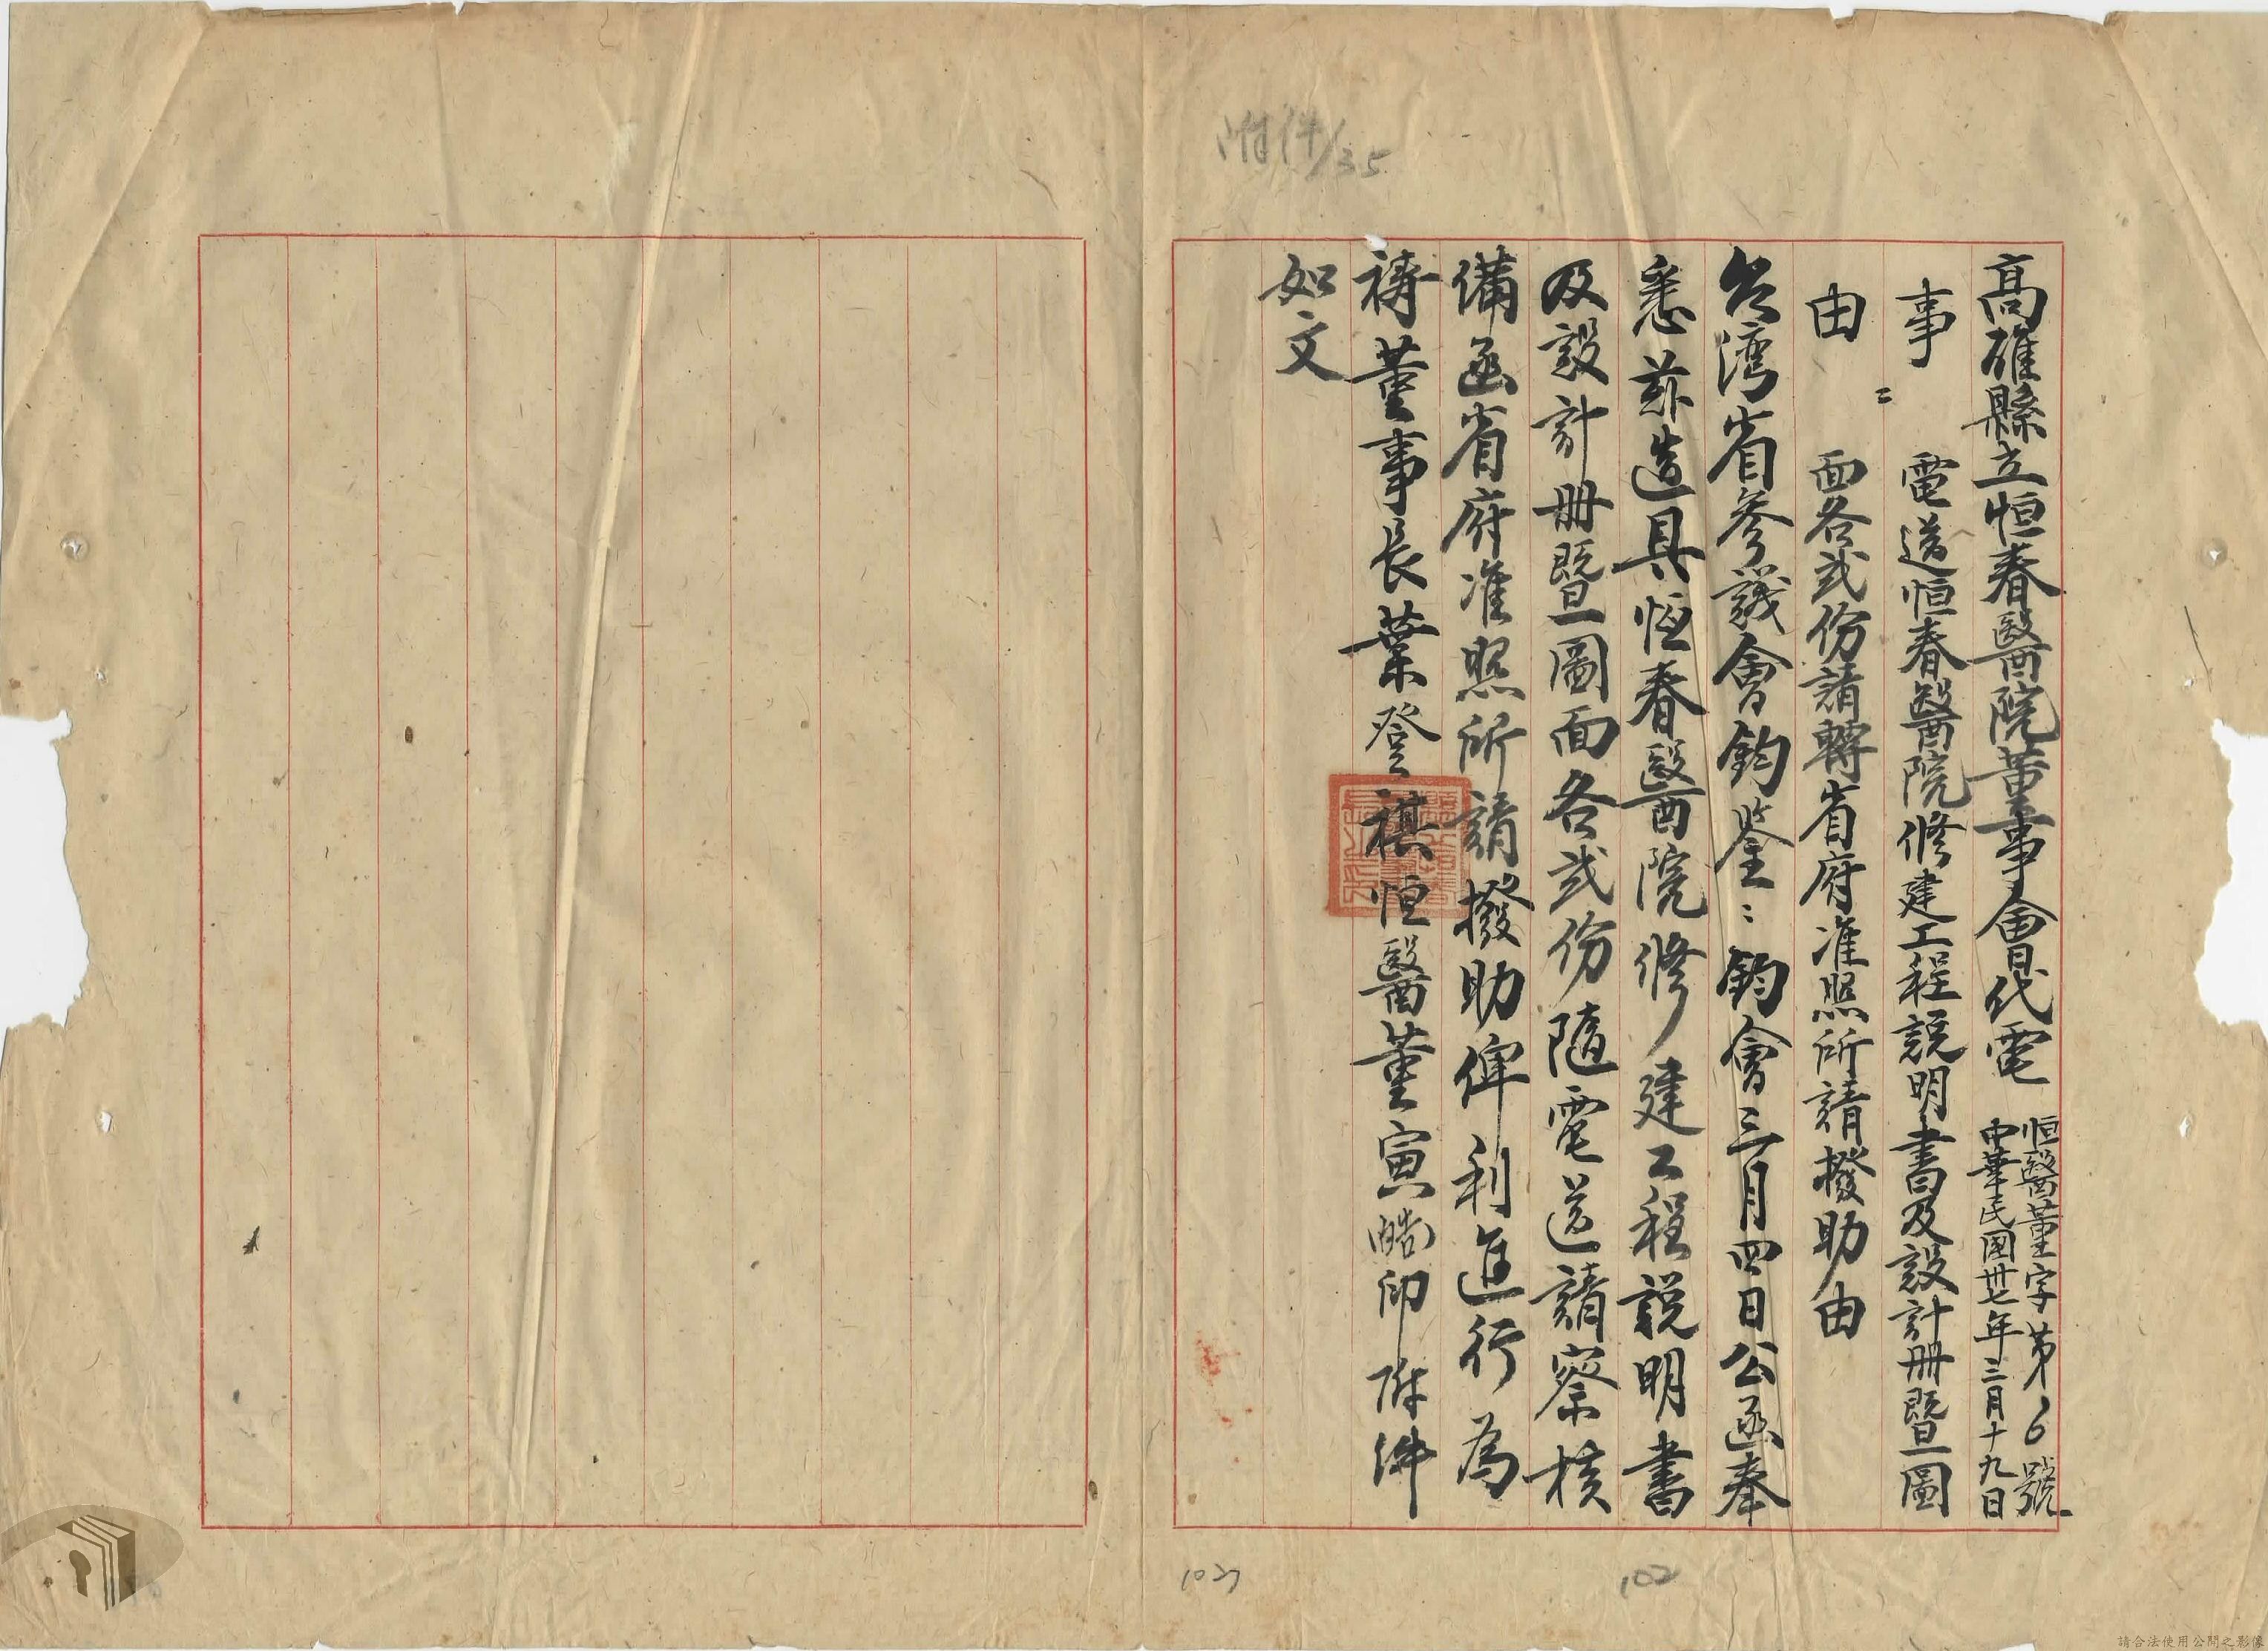 附件/35
高雄縣立恒春醫院董事會代電
恒醫董字第6號
中華民國卅七年三月十九日
事 電送恒春醫院修建工程説明書及設計册暨圖
由 面各弍份請轉省府准照所請撥助由
台湾省參議會鈞鉴:鈞會三月四日公函奉
悉茲造具恒春醫院修建工程説明書
及設計册暨圖面各弍份隨電送請察核
備函省府准照所請撥助俾利進行為
禱董事長葉登祺恒醫董寅皓印附件
如文
1027
102
請合法使用公開之影像